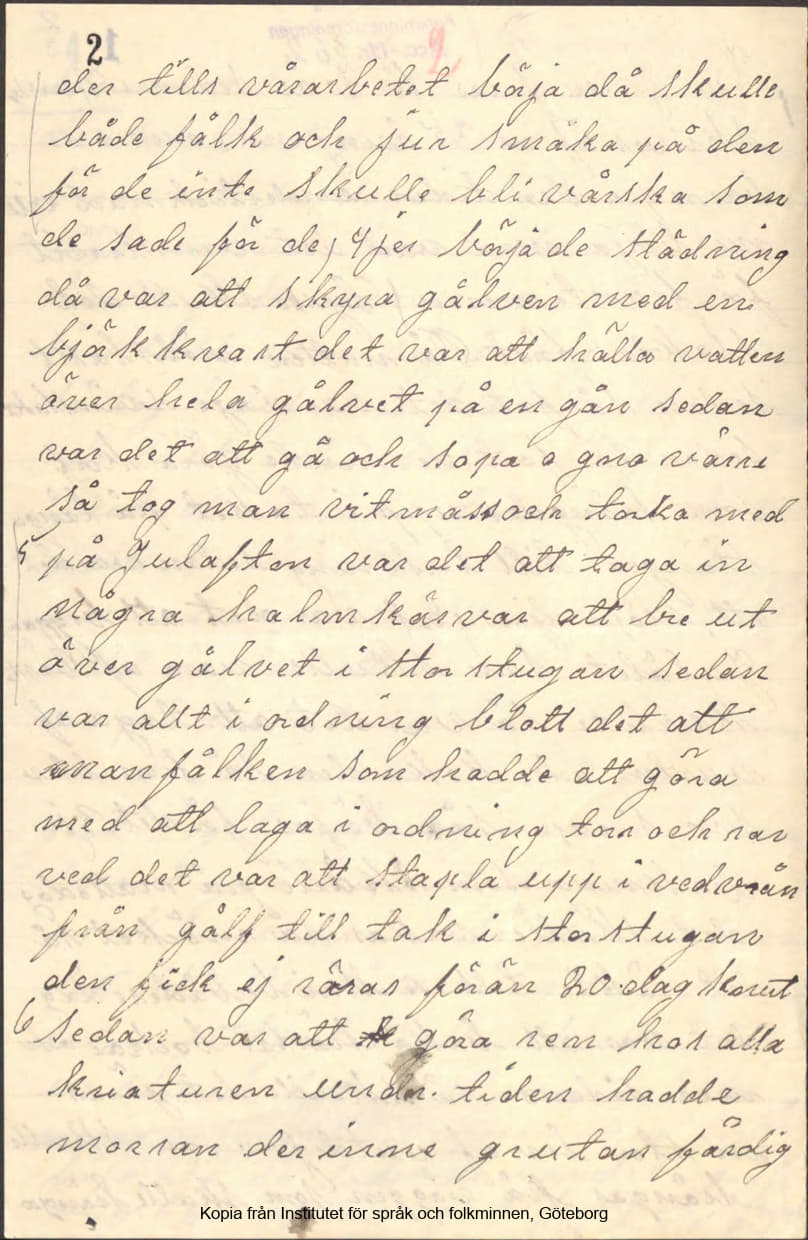 2
9
der tills vårarbetet börja då skulle
både fålk och jur smaka på den
för de inte skulle bli vårska som
de sade för de, 4 jer började städning
då var att skyra gålven med en
björkkvast det var att hälla vatten
över hela gålvet på en gån sedan
var det att gå och sopa o gno värre
så tog man vitmåss och torka med
5 på Julafton var det att taga in
några halmkärvar att bre ut
över gålvet i storstugan sedan
var allt i ordning blott det att
manfålken som hadde att göra
med att laga i ordning torr och rar
ved det var att stapla upp i vedvrån
från gålf till tak i storstugan
den fick ej röras förän 20.dag knut
6 sedan var att göra ren hos alla
kriaturen under tiden hadde
morran der inne grutan färdig
Kopia från Institutet för språk och folkminnen, Göteborg